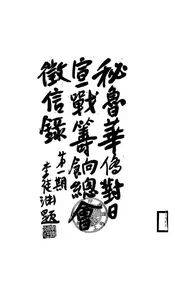 秘魯華僑對日
宣戰籌餉總會
徵信錄
第一期
李從渊題